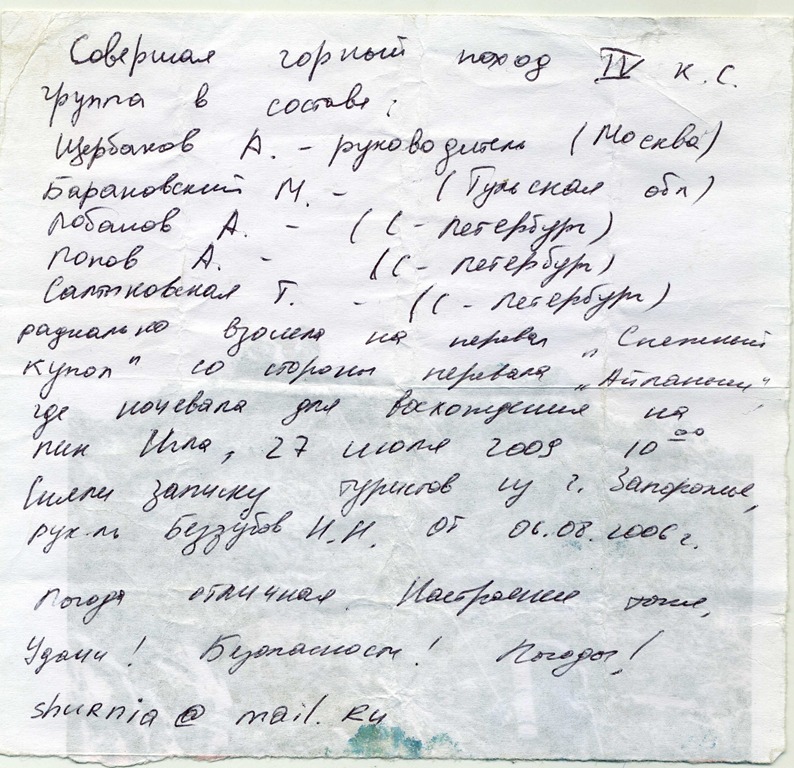 Совершая горный поход IV к.с.
группа в составе:
Щербаков А. - руководитель (Москва)
Барановский М. - (Тульская обл)
Лобанов А. - (С-Петербург)
Попов А. - (С-Петербург)
Салтыковская Т. - (С-Петербург)
радиально взошла на перевал "Снежный
купол" со стороны перевала "Айланыш"
где ночевала для восхождения на
пик Игла, 27 июля 2009 10 00
Сняли записку туристов из г. Запорожье,
рук-ль Беззубов Н.Н. от 06.08.2006 г.
Погода отличная. Настроение тоже,
Удачи! Безопасности! Погоды!
shurnia@mail.ru